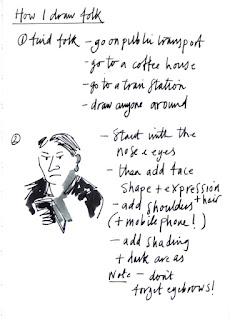 How I draw folk
① find folk - go on public transport
- go to a coffee house
- go to a train station
- draw anyone around
② - Start with the
nose + eyes
- then add face
shape + expression
- add shoulders + hair
(+ mobile phone!)
- add shading
+ dark areas
Note - don't
forget eyebrows!